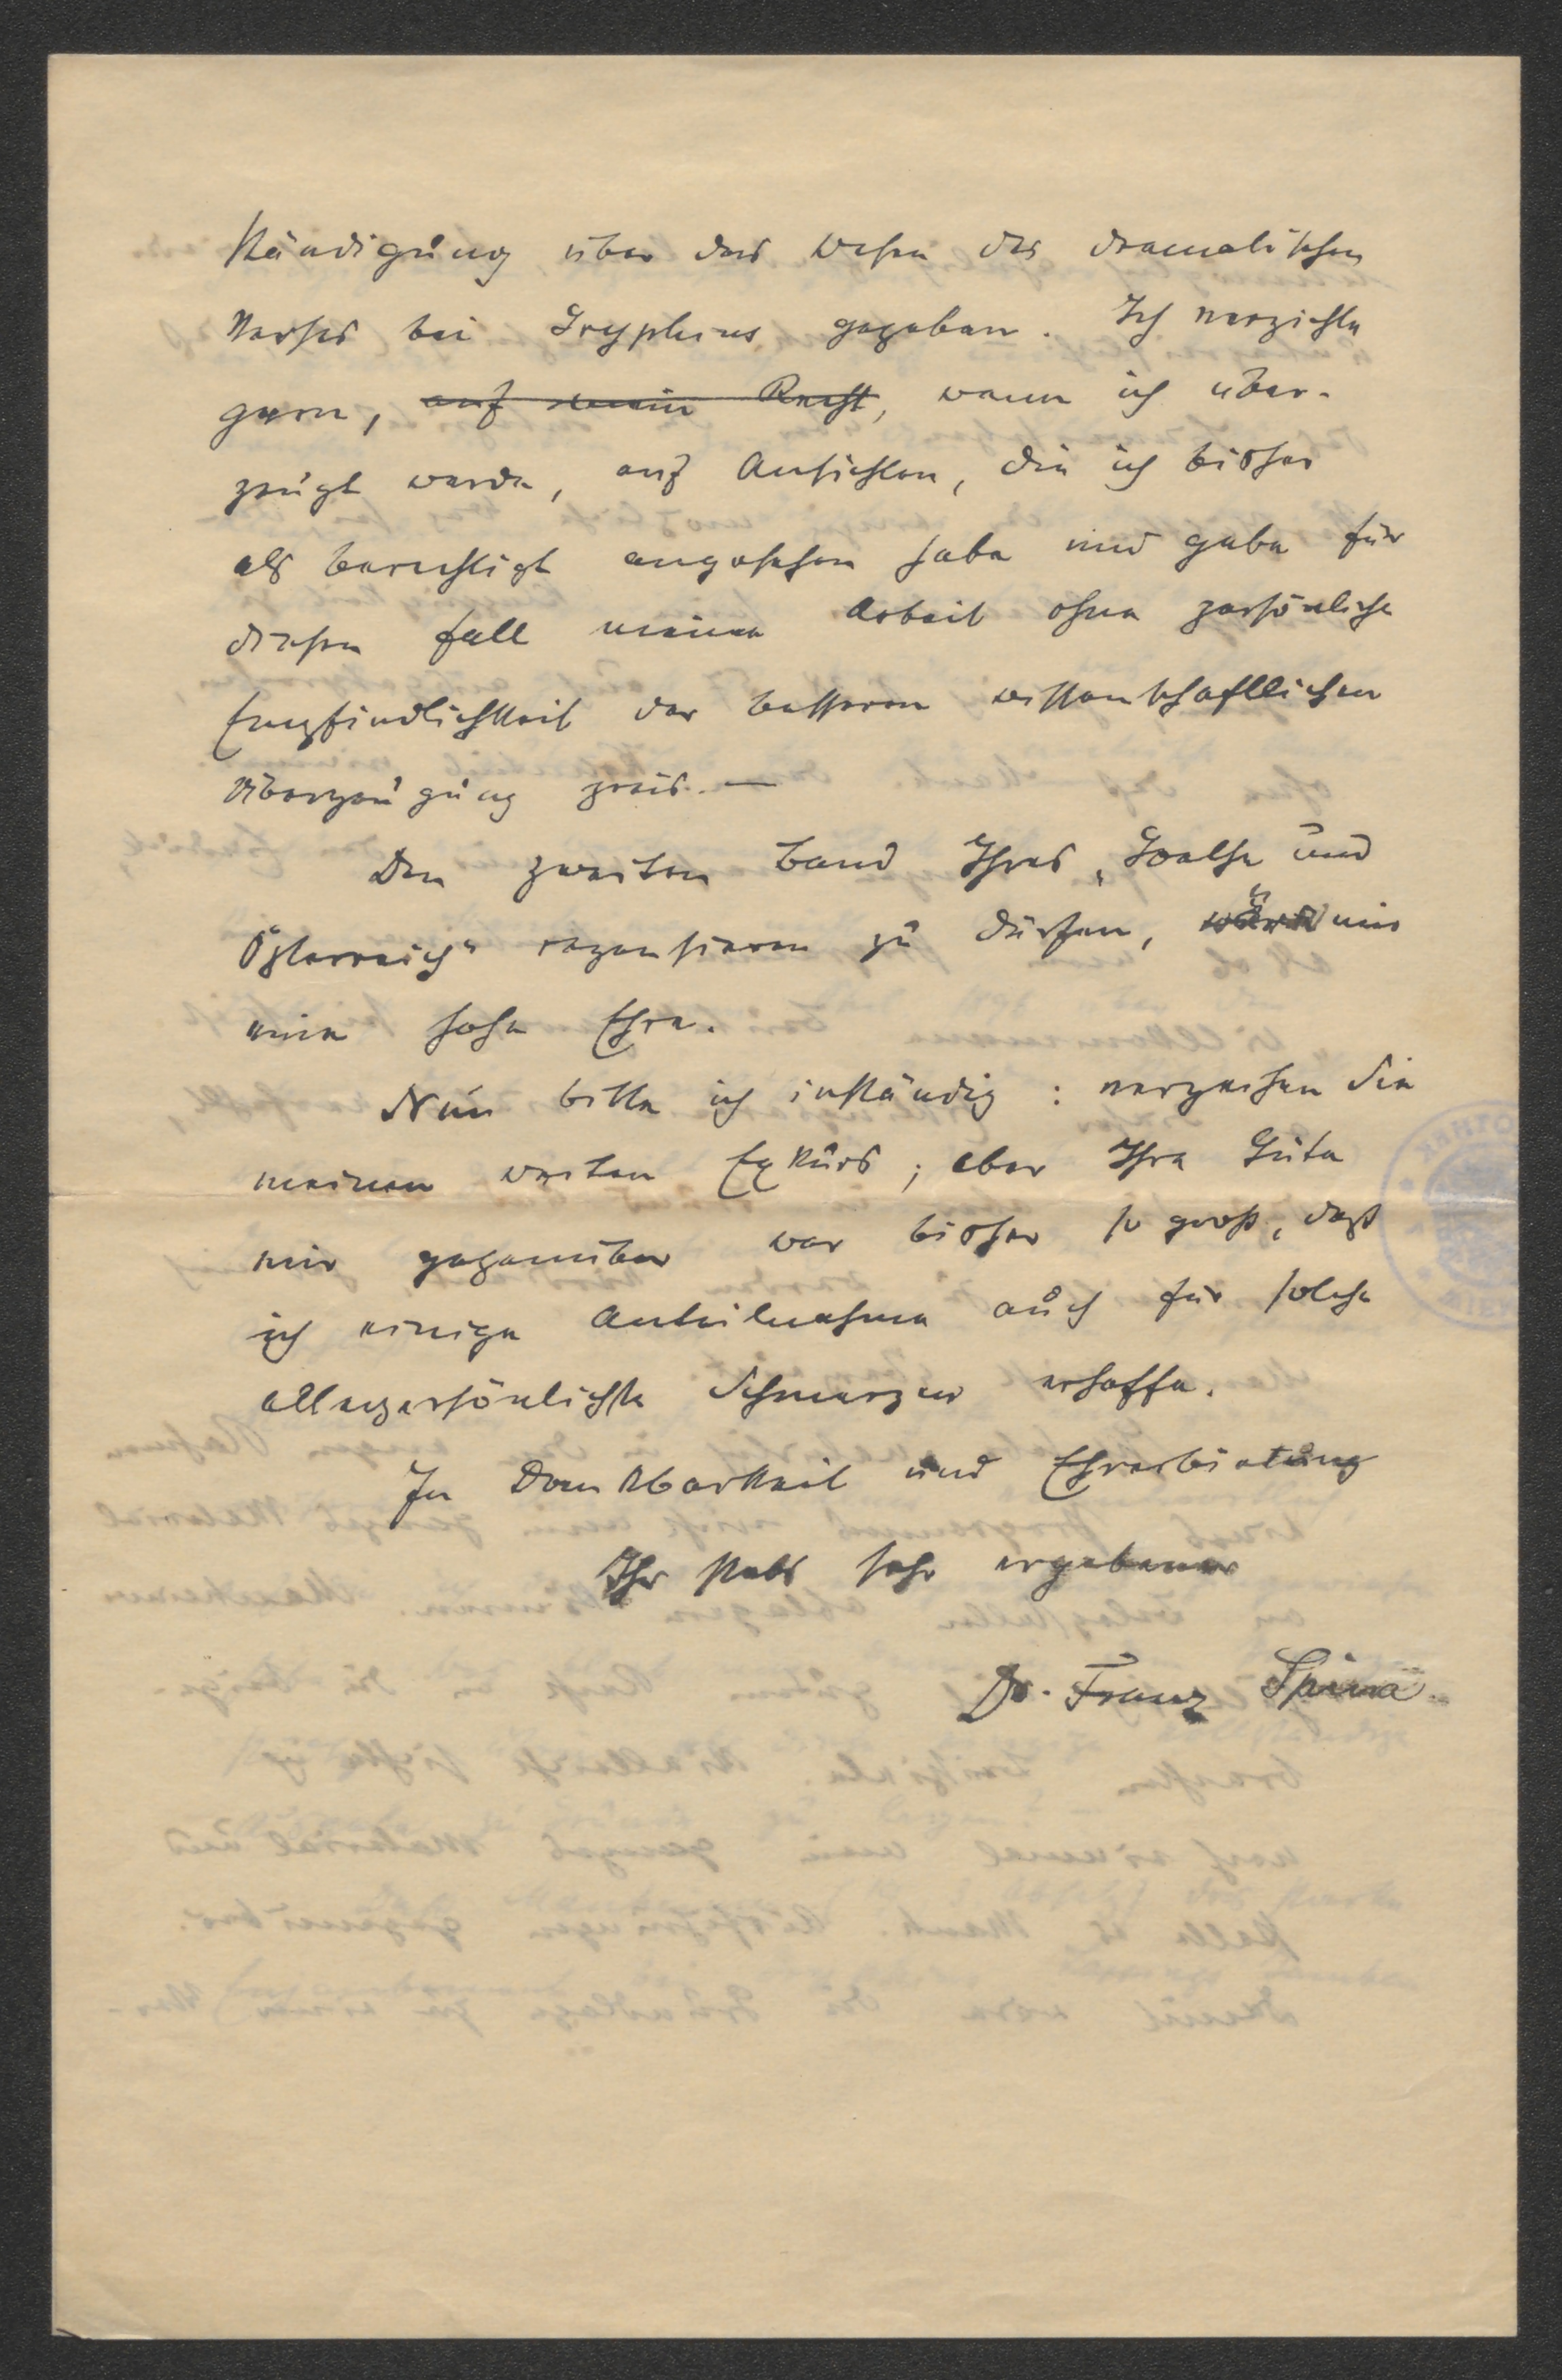 ständigung über das Wesen des dramatischen
Verses bei Gryphius gegeben. Ich verzichte
gern, auf mein Recht, wenn ich über-
zeugt werde, auf Ansichten, die ich bisher
als berechtigt angesehen habe und gebe für
diesen Fall meine Arbeit ohne persönliche
Empfindlichkeit der besseren wissenschaftlichen
Überzeugung preis. —
Den zweiten Band Ihres „Goethe und
Österreich“ rezensieren zu dürfen, wäre mir
eine hohe Ehre.
Nun bitte ich inständig: verzeihen Sie
meinen weiten Exkurs; aber Ihre Güte
mir gegenüber war bisher so groß, daß
ich einige Anteilnahme auch für solche
allerpersönlichste Schmerzen erhoffe.
In Dankbarkeit und Ehrerbietung
Ihr stets sehr ergebener
Dr. Franz Spina.